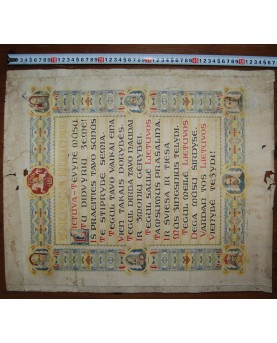 LIETUVA-TĖVYNE MŪSŲ,
TU DIDVYRIŲ ŽEME!
IŠ PRAEITIES TAVO SŪNŪS
TE STIPRYBĘ SEMIA.
TEGUL TAVO VAIKAI EINA
VIEN TAKAIS DORYBĖS,
TEGUL DIRBA TAVO NAUDAI
IR ŽMONIŲ GĖRYBEI.
TEGUL SAULĖ LIETUVOS
TAMSUMUS PRAŠALINA,
IR ŠVIESA IR TIESA
MŪS ŽINGSNIUS TELYDI.
TEGUL MEILĖ LIETUVOS
DEGA MŪSŲ ŠIRDYSE.
VARDAN TOS LIETUVOS
VIENYBĖ TEŽYDI!